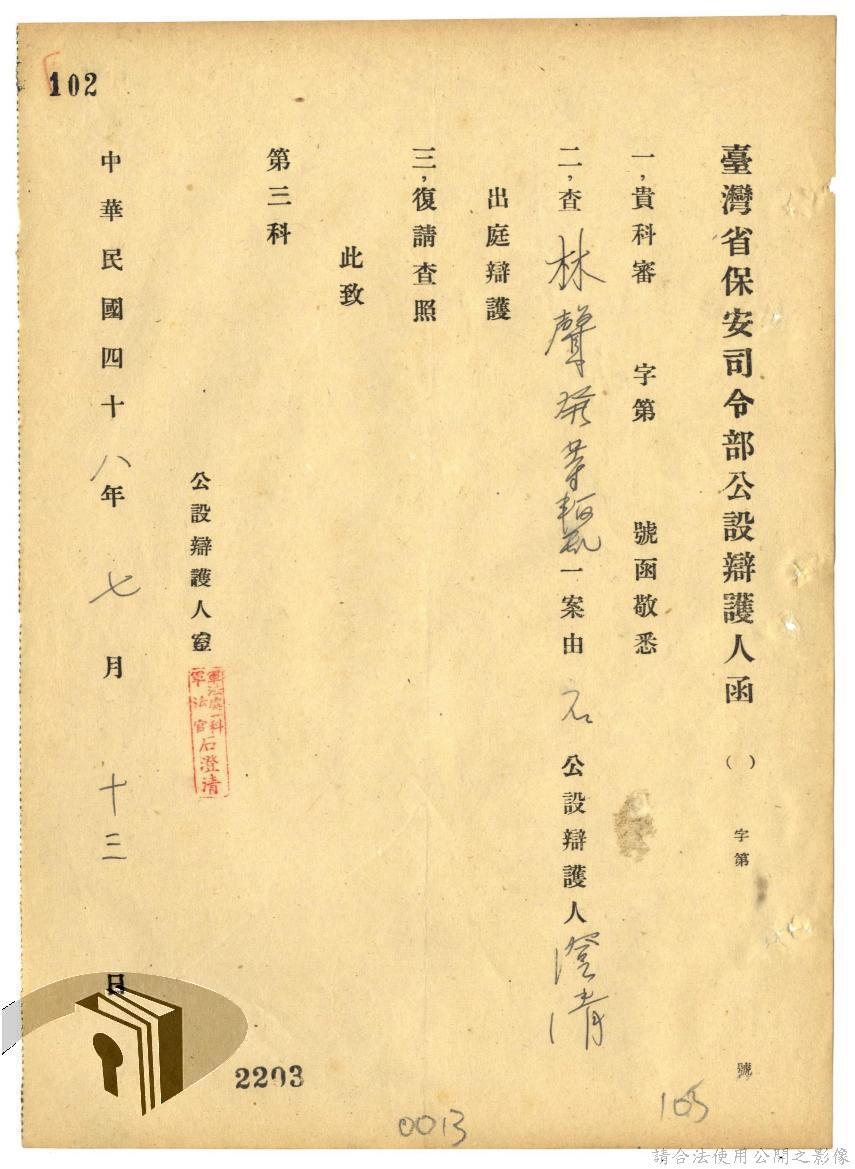 臺灣省保安司令部公設辯護人函（　）字第　　號
一，貴科審　　字第　　號函敬悉
二，查林聲發等叛亂一案由石公設辯護人澄清
出庭辯護
三，復請查照
此致
第三科
公設辯護人室
軍法處一科
軍法官石澄清
中華民國四十八年七月十三日
102
2203
0013
105
請合法使用公開之影像